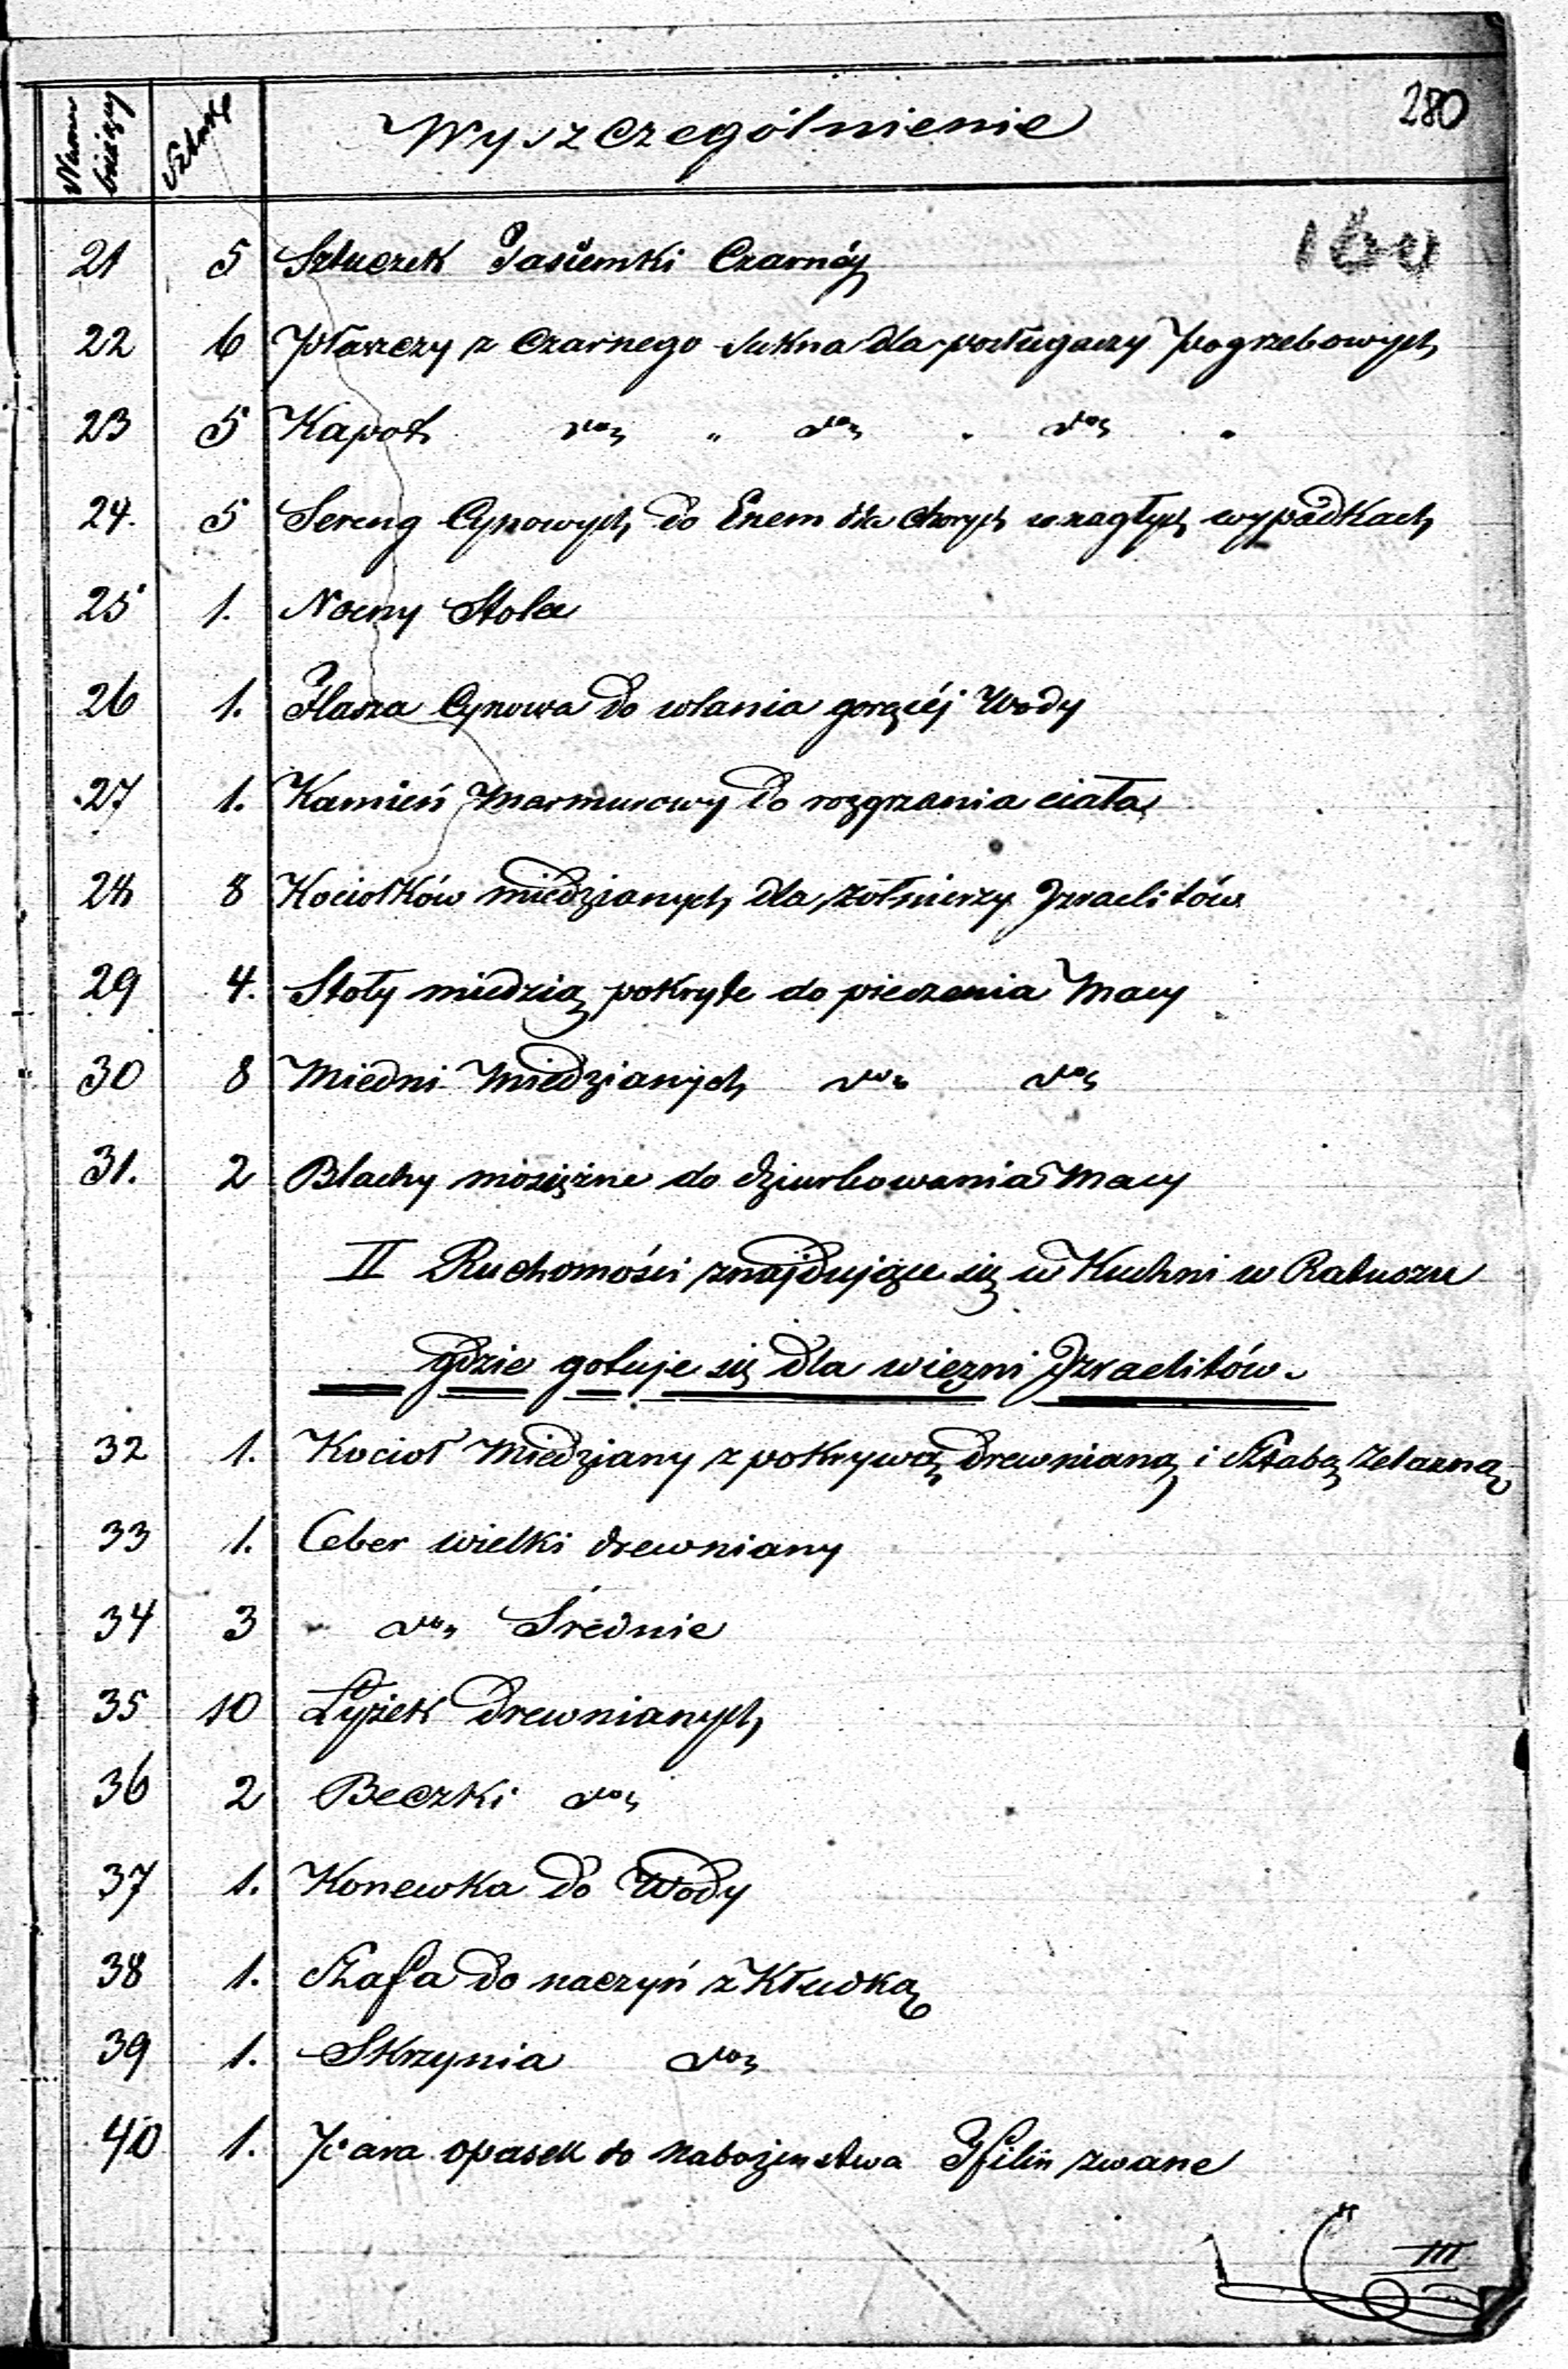 280
Numer bieżący Sztuk Wyszczególnienie
160
21 5 Sztuczek Tasiemki Czarnéj
22 6 Płaszczy z Czarnego Sukna dla posługaczy Pogrzebowych
23 5 Kapot dto " dto " dto "
24. 5 Sereng Cynowych do Enem dla Chorych w nagłych wypadkach
25 1. Nocny Stolec
26 1. Flasza Cynowa do wlania gorącéj Wody
27 1. Kamień Marmurowy do rozgrzania ciała
28 8 Kociołków miedzianych dla żołnierzy Izraelitów
29 4. Stoły miedzią pokryte do pieczenia Macy
30 8 Miedni Miedzianych dto dto
31. 2 Blachy mosiężne do dziurkowania Macy
II Ruchomości znajdujące się w Kuchni w Ratuszu
gdzie gotuje się dla więzni Izraelitów.
32 1. Kocioł Miedziany z pokrywą drewnianą i Sztabą Żelazną
33 1. Ceber wielki drewniany
34 3 " dto Średnie
35 10 Łyżek Drewnianych
36 2 Beczki dto
37 1. Konewka do Wody
38 1. Szafa do naczyń z Kłudką
39 1. Skrzynia dto
40 1. Para opasek do Nabożeństwa Tfilin zwane
III